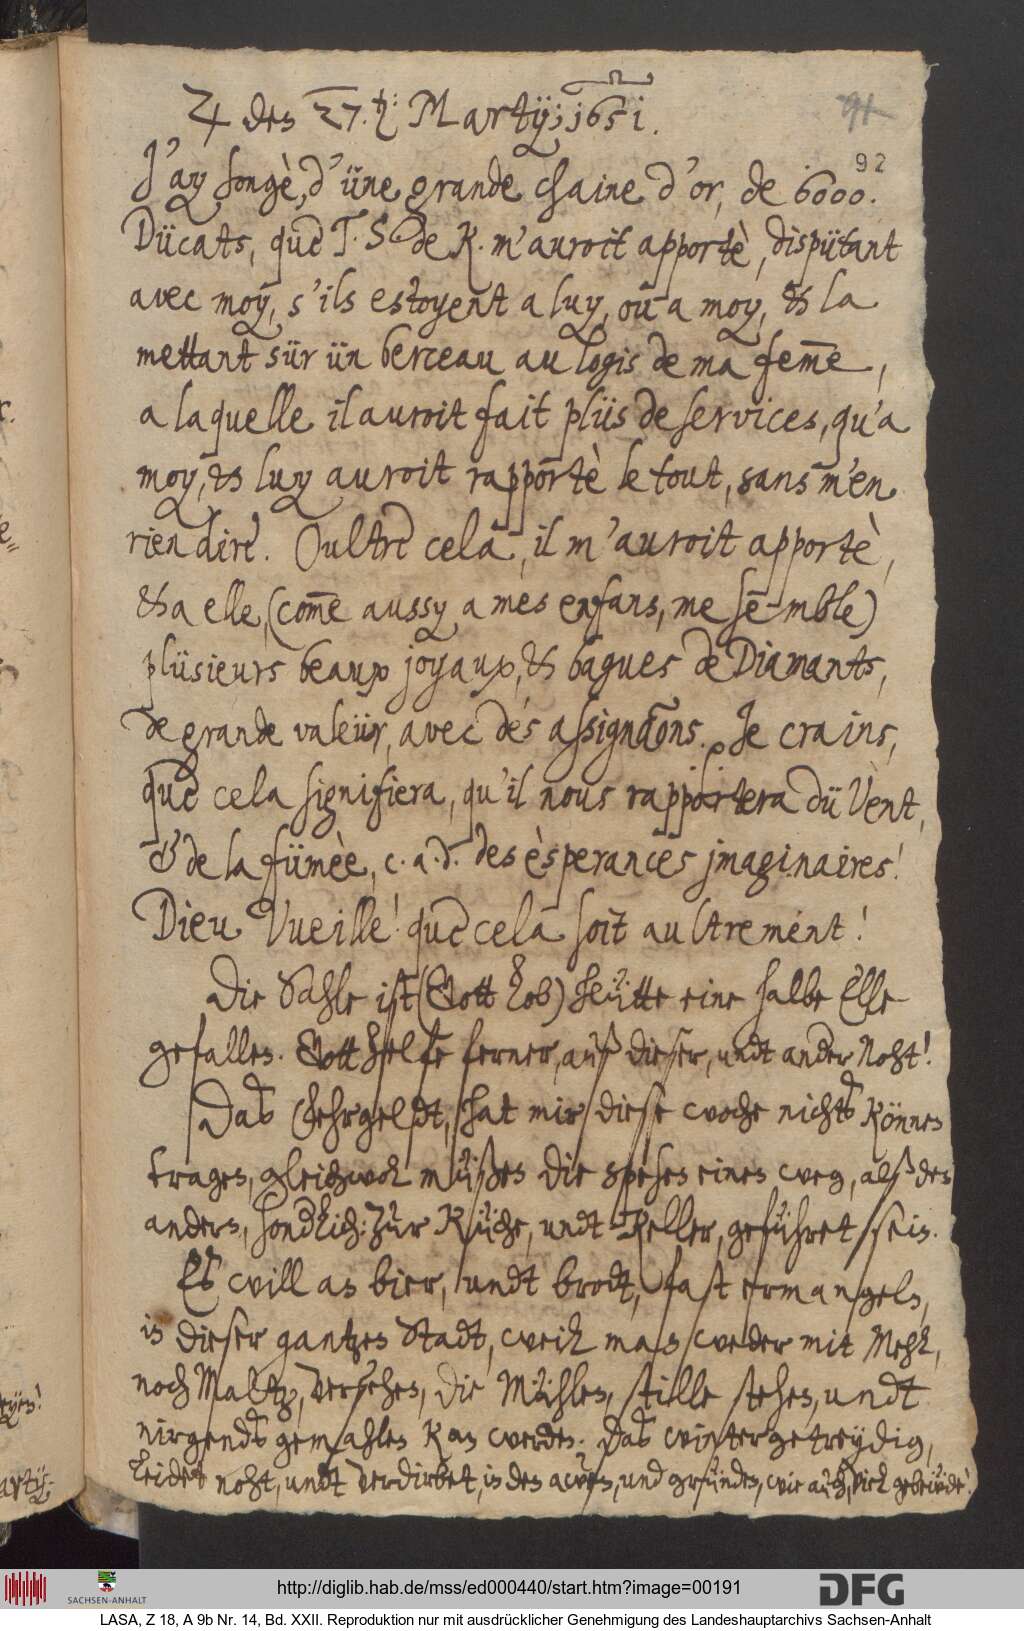 ♃ des 27.t: Martij; 1651.
91
92
J'ay songè, d'üne grande chaine d'or, de 6000.
Dücats, que T. S. de K. m'auroit apportè, dispütant
avec moy, s'ils estoyent a luy, ou a moy, & la
mettant sür ün berceau au logis de ma fem̄e,
a laquelle il auroit fait plüs de services, qu'a
moy, & luy auroit rapportè le tout, sans m'en
rien dire. Oultre cela, il m'auroit apportè,
& a elle, (com̄e aussy a mes enfans, me semble)
plüsieurs beaux joyaux, & bagues de Diamants,
de grande valeür, avec des assignãons. Je crains,
que cela signifiera, qu'il nous rapportera dü Vent,
& de la fümèe, c. a. d. des èsperances jmaginaires!
Dieu Vueille! que cela soit aultrement!
Die Sahle ist (Gott lob) heütte eine halbe Elle
gefallen. Gott helfe ferner, auß dieser, undt ander Noht!
Das Gehrgeldt, hat mir diese woche nichts können
tragen, gleichwol müßen die spesen einen weg, alß den
andern, sondlich: zur Küche, undt Keller, geführet sein.
Es will an bier, undt brodt, fast ermangeln,
in dieser gantzen Stadt, weil man weder mit Mehl,
noch Maltz, versehen, die Mühlen, stille stehen, undt
nirgends gemahlen kan werden. Das wintergetreydig,
leidet noht, undt verdirbet, in den awen, und gründen, wie auch, viel gebeüde!
http://diglib.hab.de/mss/ed000440/start.htm?image=00191
SACHSEN-ANHALT
DFG
LASA, Z 18, A 9b Nr. 14, Bd. XXII. Reproduktion nur mit ausdrücklicher Genehmigung des Landeshauptarchivs Sachsen-Anhalt